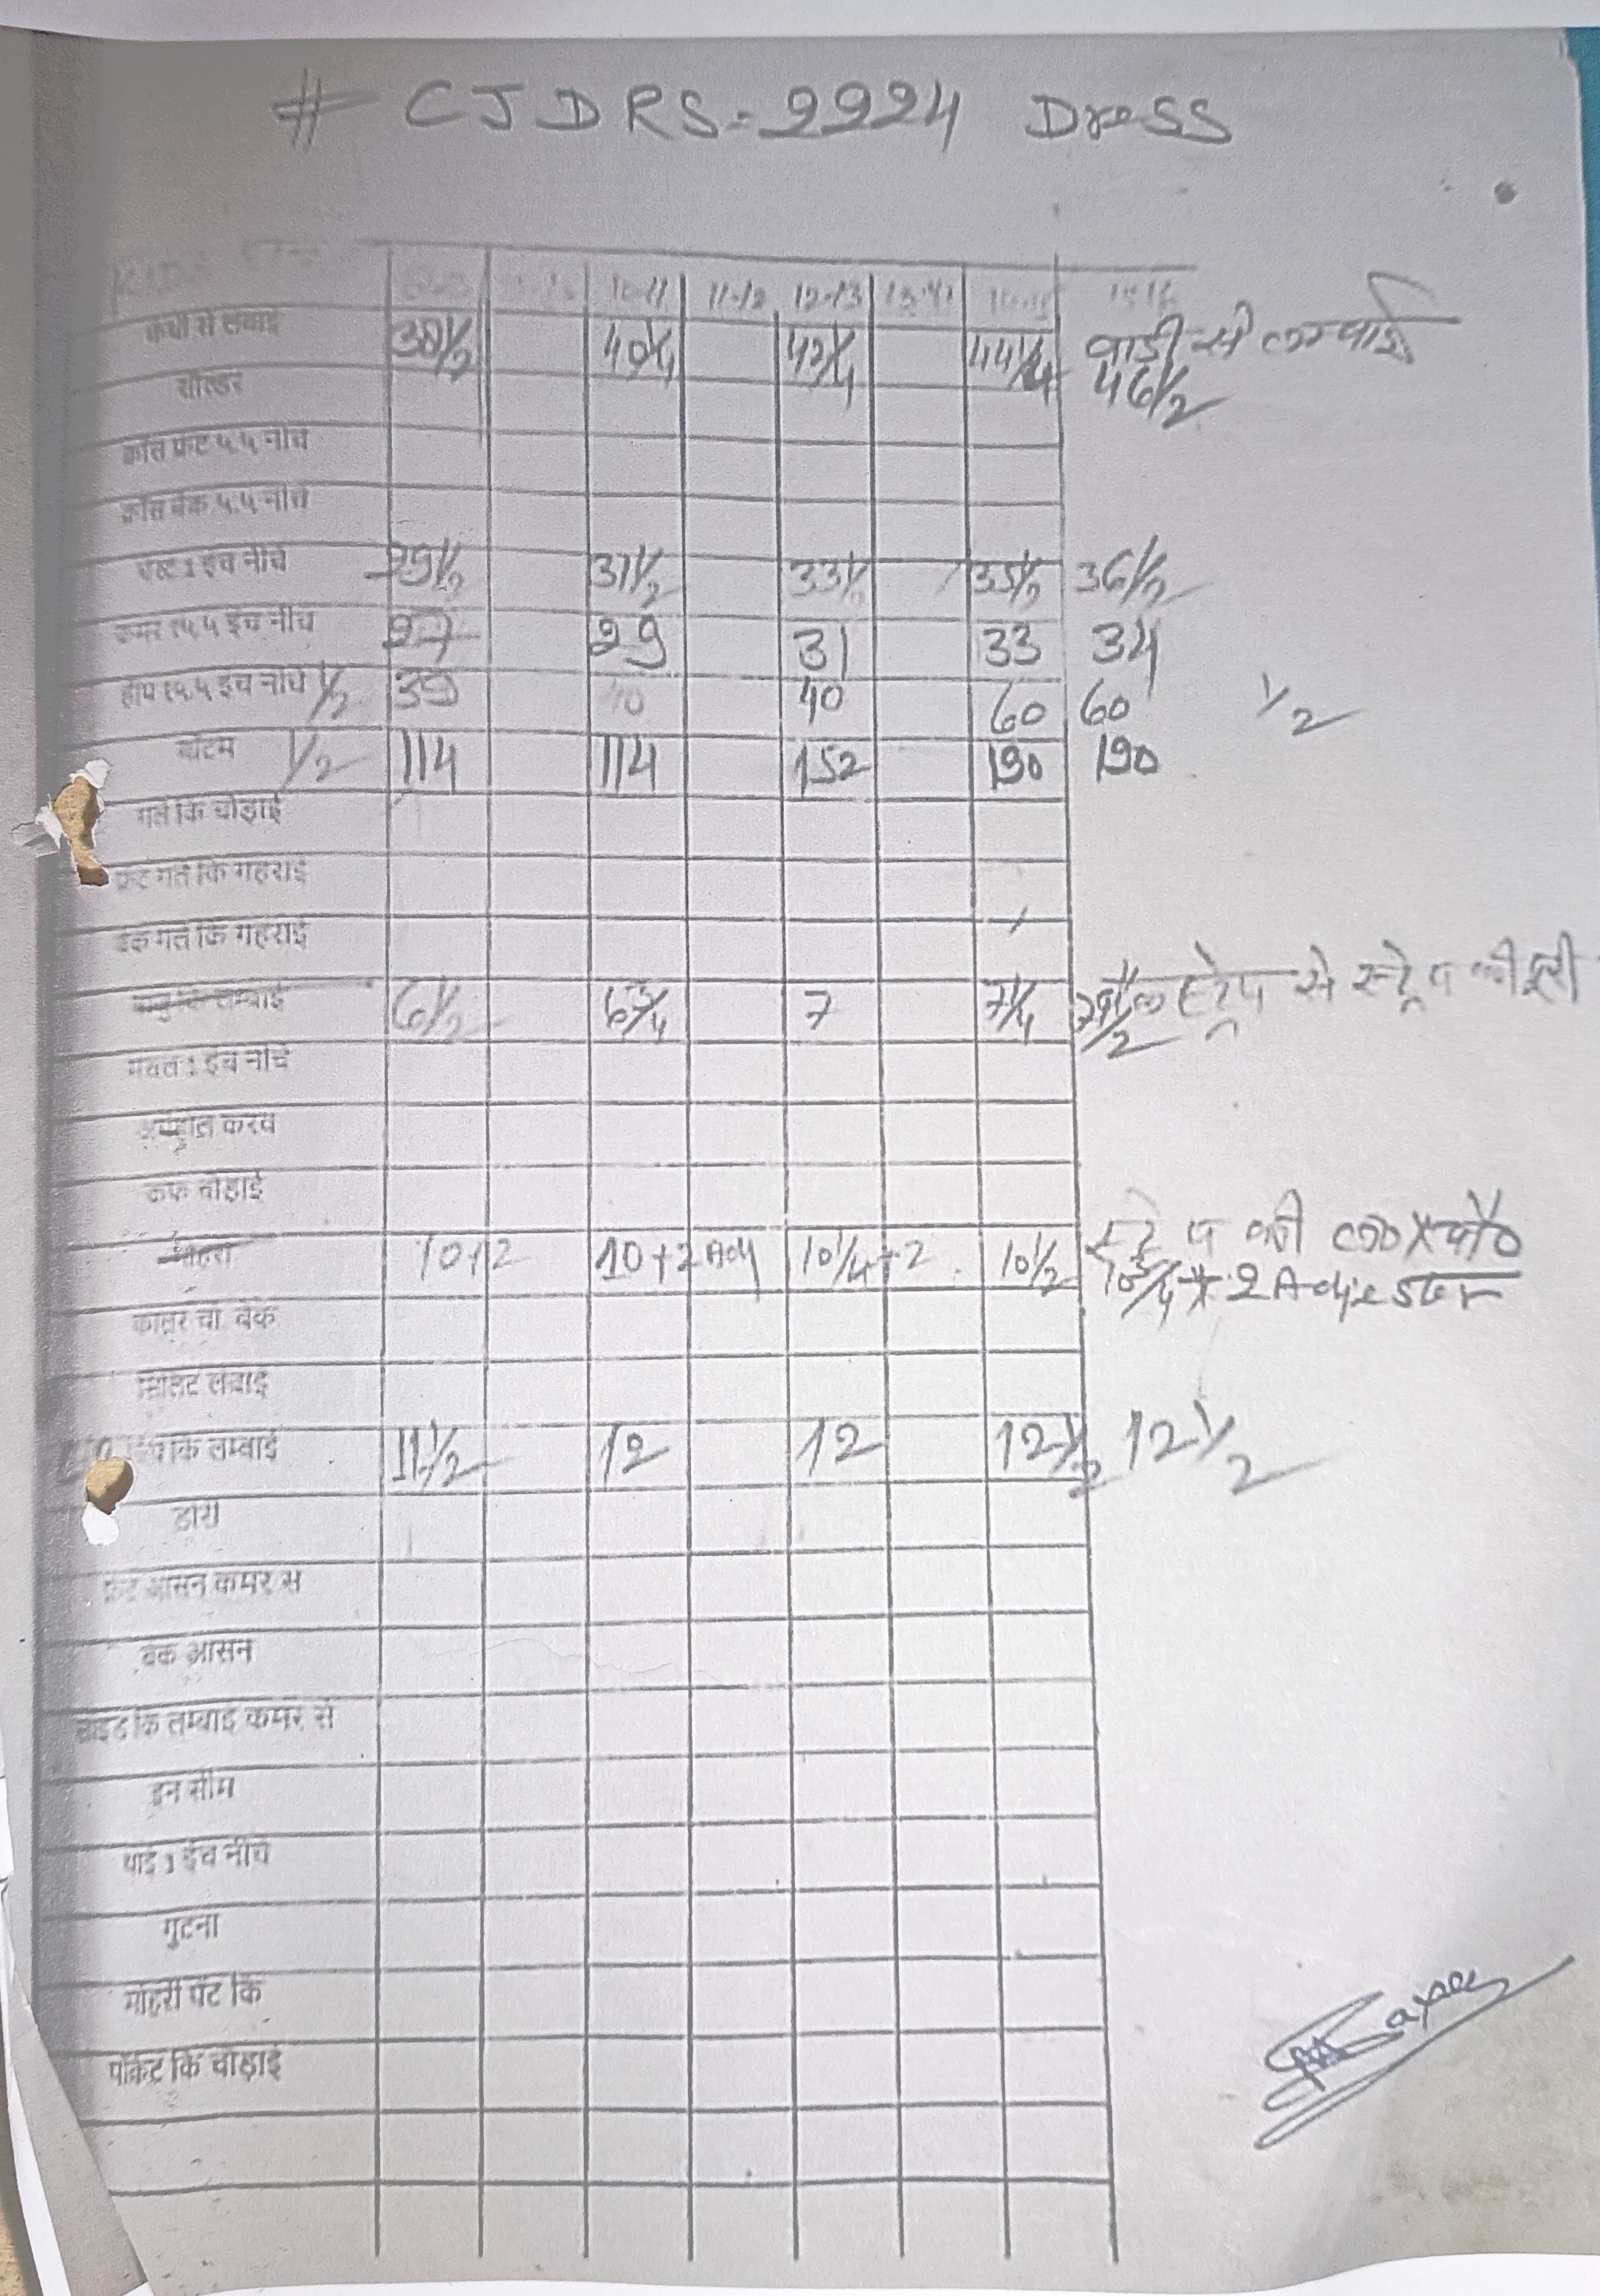 # CJDRS-2224 Dress
10-11 11-12 12-13 13-14 15-16
कंधो से लंबाई 38 1/2 40 1/4 42 1/4 44 1/4 बाडी से लम्बाई
46 1/2
शोल्डर
क्रोस फ्रंट ५.५ नीचे
क्रोस बेक ५.५ नीचे
चेस्ट 1 इंच नीचे 29 1/2 31 1/2 33 1/2 35 1/2 36 1/2
कमर १५.५ इंच नीचे 27 29 31 33 34
1/2 39 40 40 60 60 1/2
बॉटम 1/2 114 114 152 190 190
गले कि चोड़ाई
फ्रंट गले कि गहराई
बेक गले कि गहराई
लम्बाई 6 1/2 6 3/4 7 7 1/4 स्ट्रेप से स्ट्रेप की दूरी
मसल 1 इंच नीचे
आर्महोल करव
कफ चोड़ाई
मोहरी 10+2 10+2 Adj 10 1/4+2 10 1/2 स्ट्रेप की
10 3/4 + 2 Adjester
कालर चो. बेक
स्लिट लंबाई
कि लम्बाई 11 1/2 12 12 12 1/2 12 1/2
डोरी
फ्रंट आसन कमर से
बेक आसन
साइड कि लम्बाई कमर से
इन सीम
थाई 1 इंच नीचे
गुटना
मोहरी पेंट कि
पॉकेट कि चोड़ाई